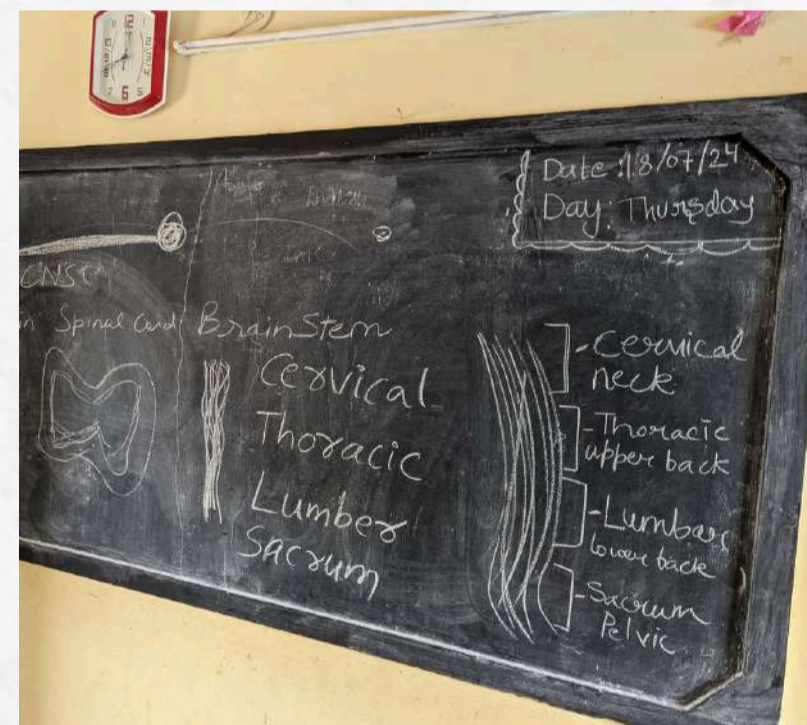 Date: 18/07/24
Day: Thursday
CNS
Spinal Cord
Brain Stem
Cervical
Thoracic
Lumber
Sacrum
-Cervical
neck
-Thoracic
upper back
-Lumbar
lower back
-Sacrum
Pelvic